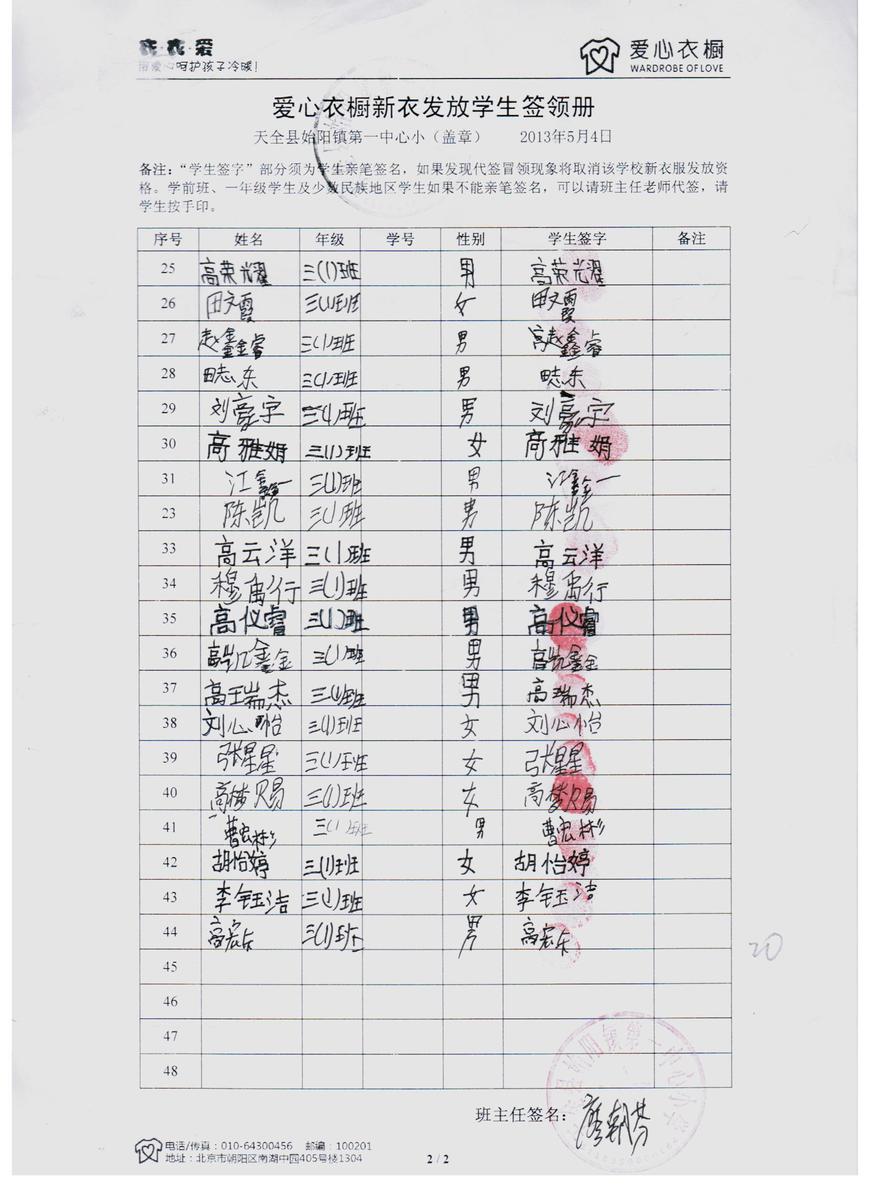 衣·衣·爱
用爱心呵护孩子冷暖！
爱心衣橱
WARDROBE OF LOVE
爱心衣橱新衣发放学生签领册
天全县始阳镇第一中心小（盖章） 2013年5月4日
备注：“学生签字”部分须为学生亲笔签名，如果发现代签冒领现象将取消该学校新衣服发放资
格。学前班、一年级学生及少数民族地区学生如果不能亲笔签名，可以请班主任老师代签，请
学生按手印。
序号 姓名 年级 学号 性别 学生签字 备注
25 高荣光耀 三(1)班 男 高荣光耀
26 田文霞 三(1)班 女 田文霞
27 赵鑫睿 三(1)班 男 高赵鑫睿
28 田志东 三(1)班 男 田志东
29 刘豪宇 三(1)班 男 刘豪宇
30 高雅娟 三(1)班 女 高雅娟
31 江鑫一 三(1)班 男 江鑫一
23 陈凯 三(1)班 男 陈凯
33 高云洋 三(1)班 男 高云洋
34 穆禹行 三(1)班 男 穆禹行
35 高仪睿 三(1)班 男 高仪睿
36 高凯鑫金 三(1)班 男 高凯鑫金
37 高王瑞杰 三(1)班 男 高瑞杰
38 刘心怡 三(1)班 女 刘心怡
39 张星星 三(1)班 女 张星星
40 高梦赐 三(1)班 女 高梦赐
41 曹宏彬 三(1)班 男 曹宏彬
42 胡怡婷 三(1)班 女 胡怡婷
43 李钰洁 三(1)班 女 李钰洁
44 高宏乐 三(1)班 男 高宏乐
45
46
47
48
20
班主任签名：廖朝芬
电话/传真：010-64300456 邮编：100201
地址：北京市朝阳区南湖中园405号楼1304
2 / 2